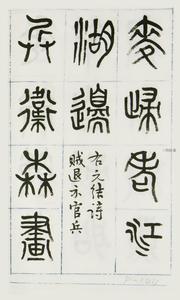 麥歸老江
湖邊
右元结詩
賊退示官兵
兵衛森畫